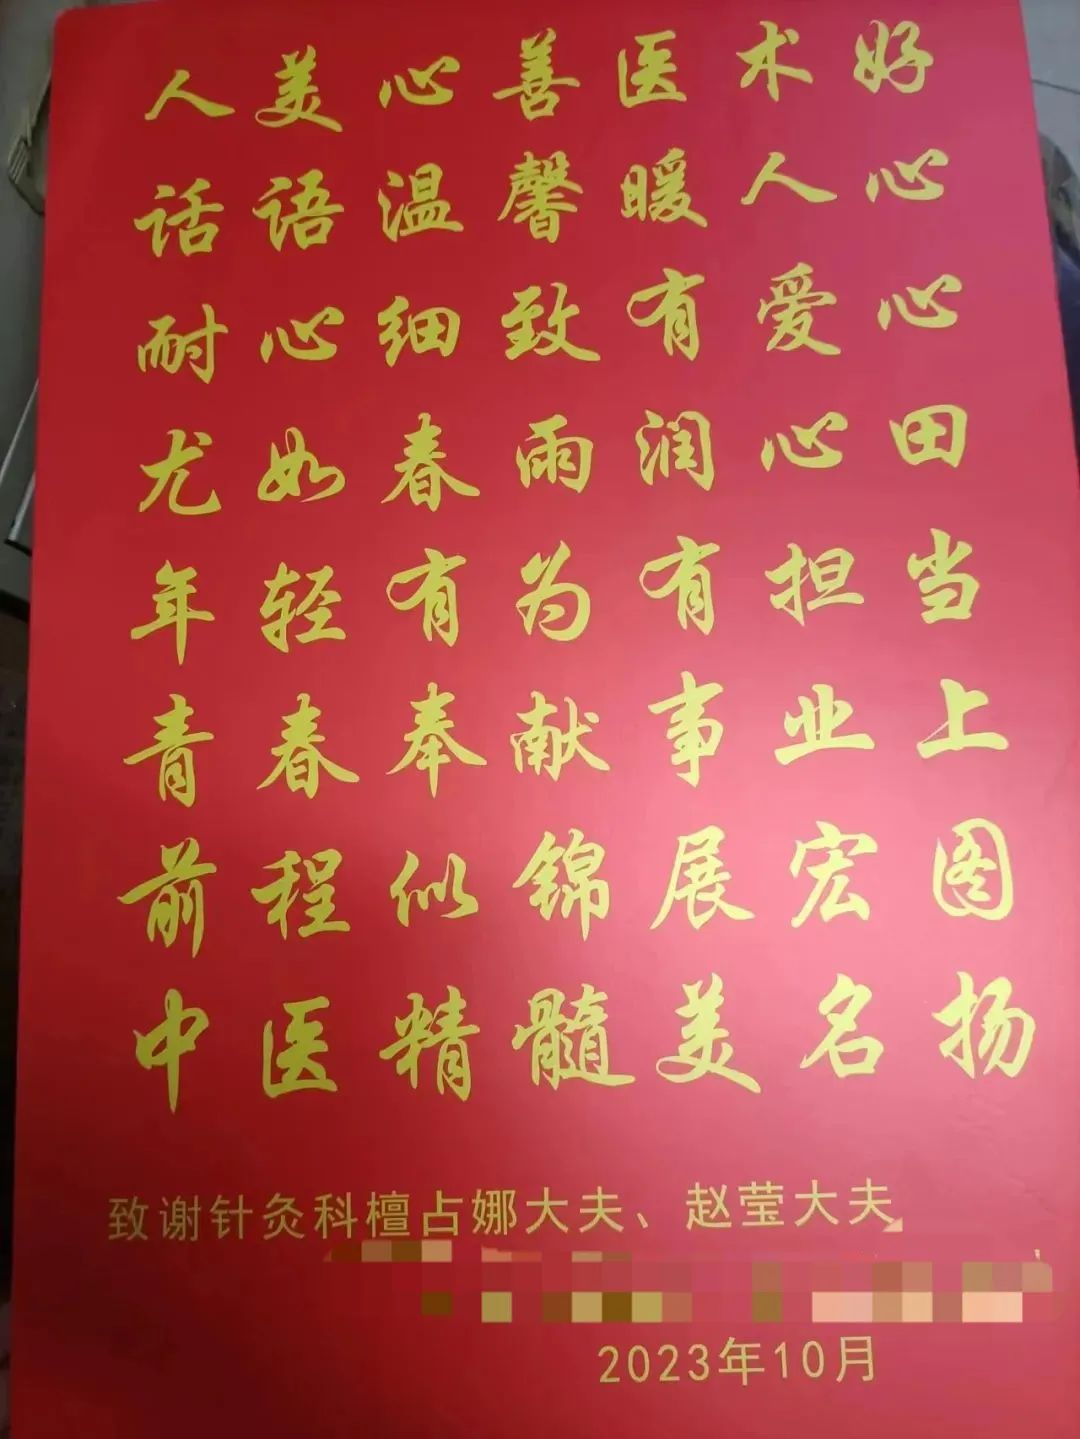 人美心善医术好
话语温馨暖人心
耐心细致有爱心
尤如春雨润心田
年轻有为有担当
青春奉献事业上
前程似锦展宏图
中医精髓美名扬
致谢针灸科檀占娜大夫、赵莹大夫
2023年10月